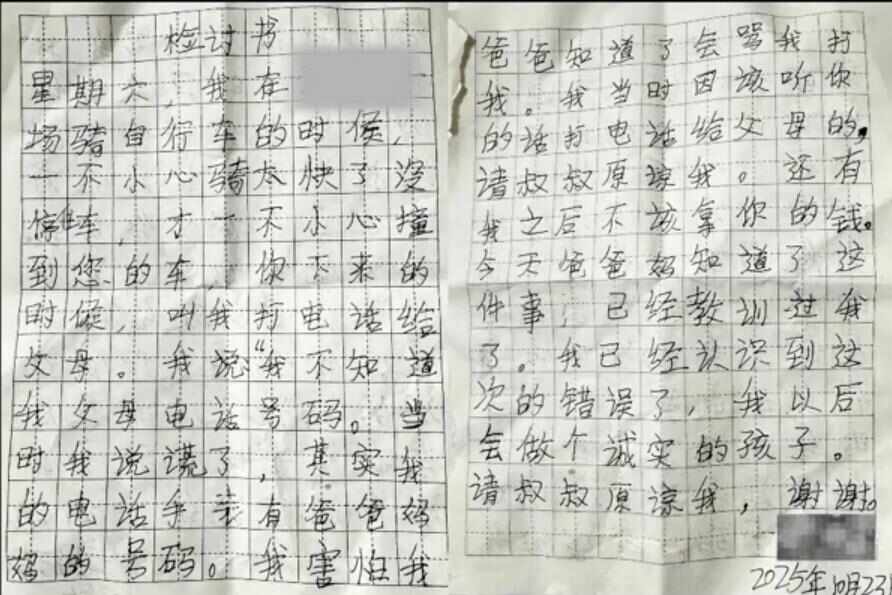 检讨书
星期六,我在
场骑自行车的时候,
一不小心骑太快了没
停住车,才一不小心撞
到您的车,你下来的
时候,叫我打电话给
父母。我说“我不知道
我父母电话号码。当
时我说谎了,其实我
的电话手表有爸爸妈
妈的号码。我害怕我
爸爸知道了会骂我打
我。我当时因该听你
的话打电话给父母的,
请叔叔原谅我。还有
我之后不该拿你的钱。
今天爸爸妈知道了这
件事,已经教训过我
了。我已经认识到这
次的错误了,我以后
会做个诚实的孩子。
请叔叔原谅我,谢谢。
2025年10月23日